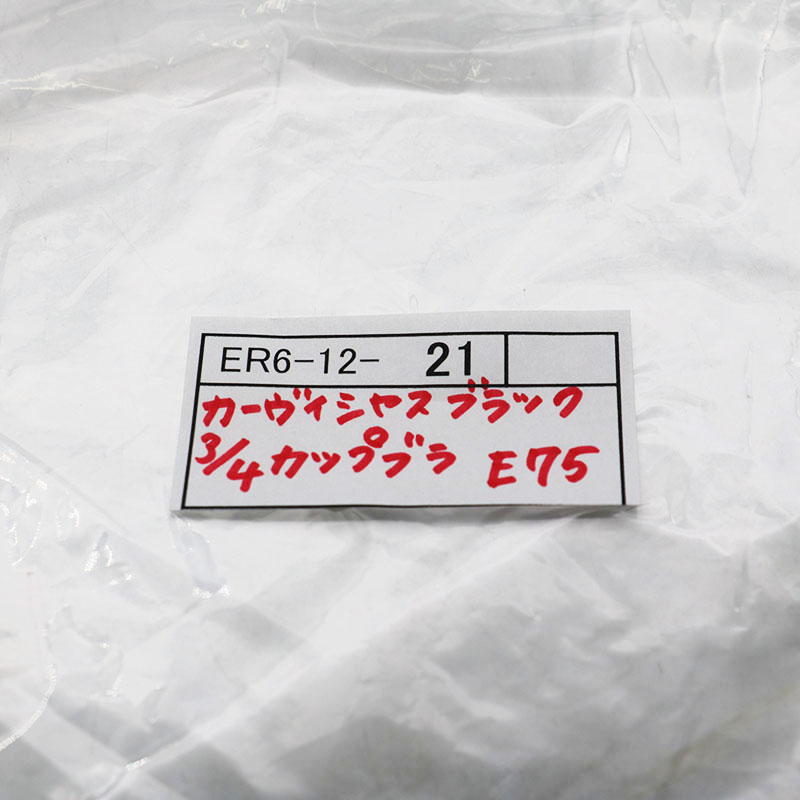 ER6-12- 21
カーヴィシャス ブラック
3/4カップブラ E75